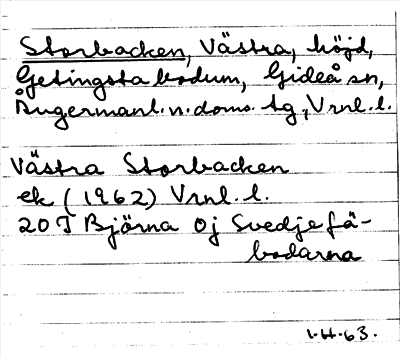 Storbacken, Västra, höjd,
Getingsta bodum, Gideå sn,
Ångermanl. n. doms. tg, Vrnl. l.
Västra Storbacken
ek (1962) Vrnl. l.
20 J Björna 0j Svedjefä-
bodarna
1.H.63.